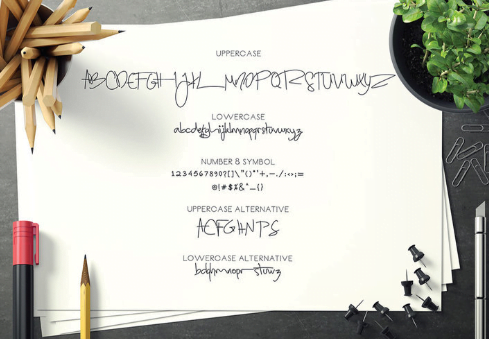 UPPERCASE
ABCDEFGHIJKLMNOPQRSTUVWXYZ
LOWERCASE
abcdefghijklmnopqrstuvwxyz
NUMBER & SYMBOL
UPPERCASE ALTERNATIVE
ACFGHNPS
LOWERCASE ALTERNATIVE